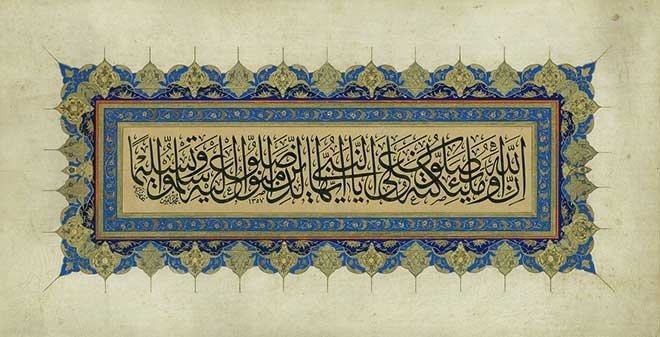 إن الله وملئكته يصلون على النبي يا ايها الذين آمنوا صلوا عليه وسلموا تسليما